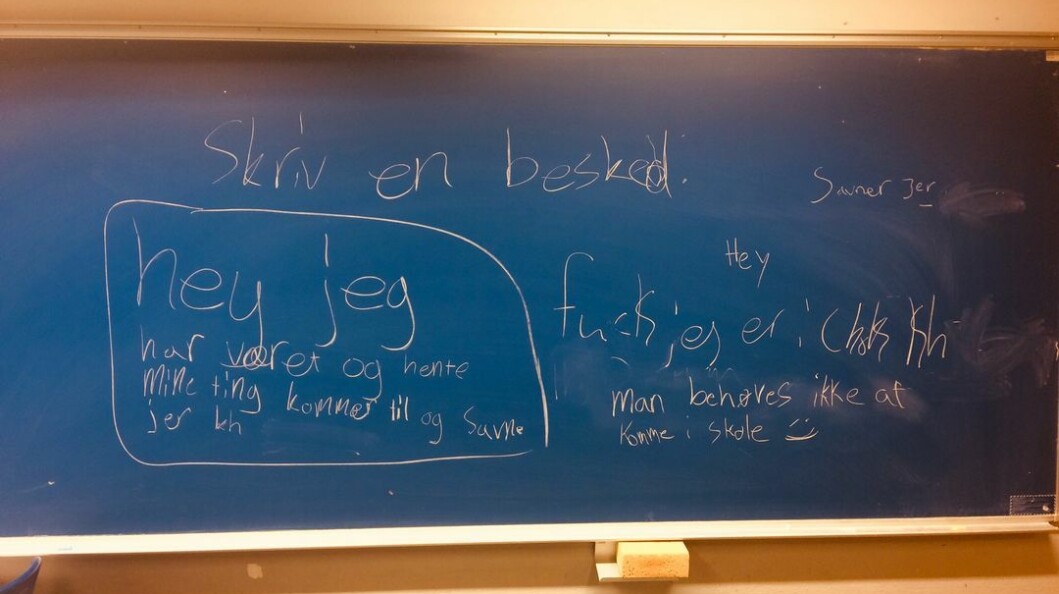 Skriv en besked.
Savner jer
hey jeg
har været og hente
mine ting kommer til og savne
jer kh
Hey
fuck jeg er i chok Kh
man behøves ikke at
komme i skole :)